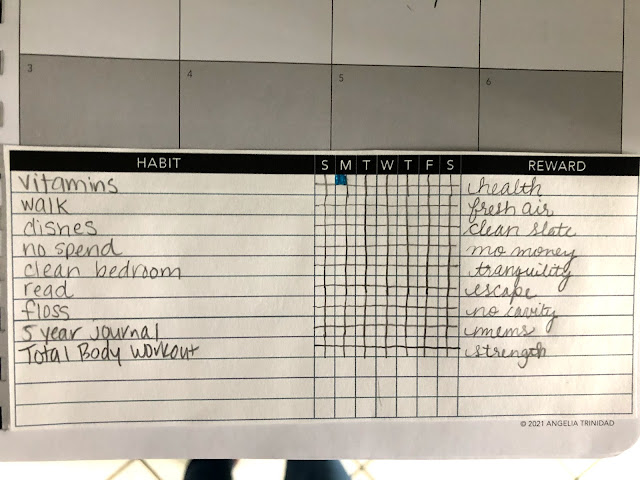 3 4 5 6
HABIT S M T W T F S REWARD
vitamins health
walk fresh air
dishes clean slate
no spend mo money
clean bedroom tranquility
read escape
floss no cavity
5 year journal mems
Total Body Workout strength
© 2021 ANGELIA TRINIDAD